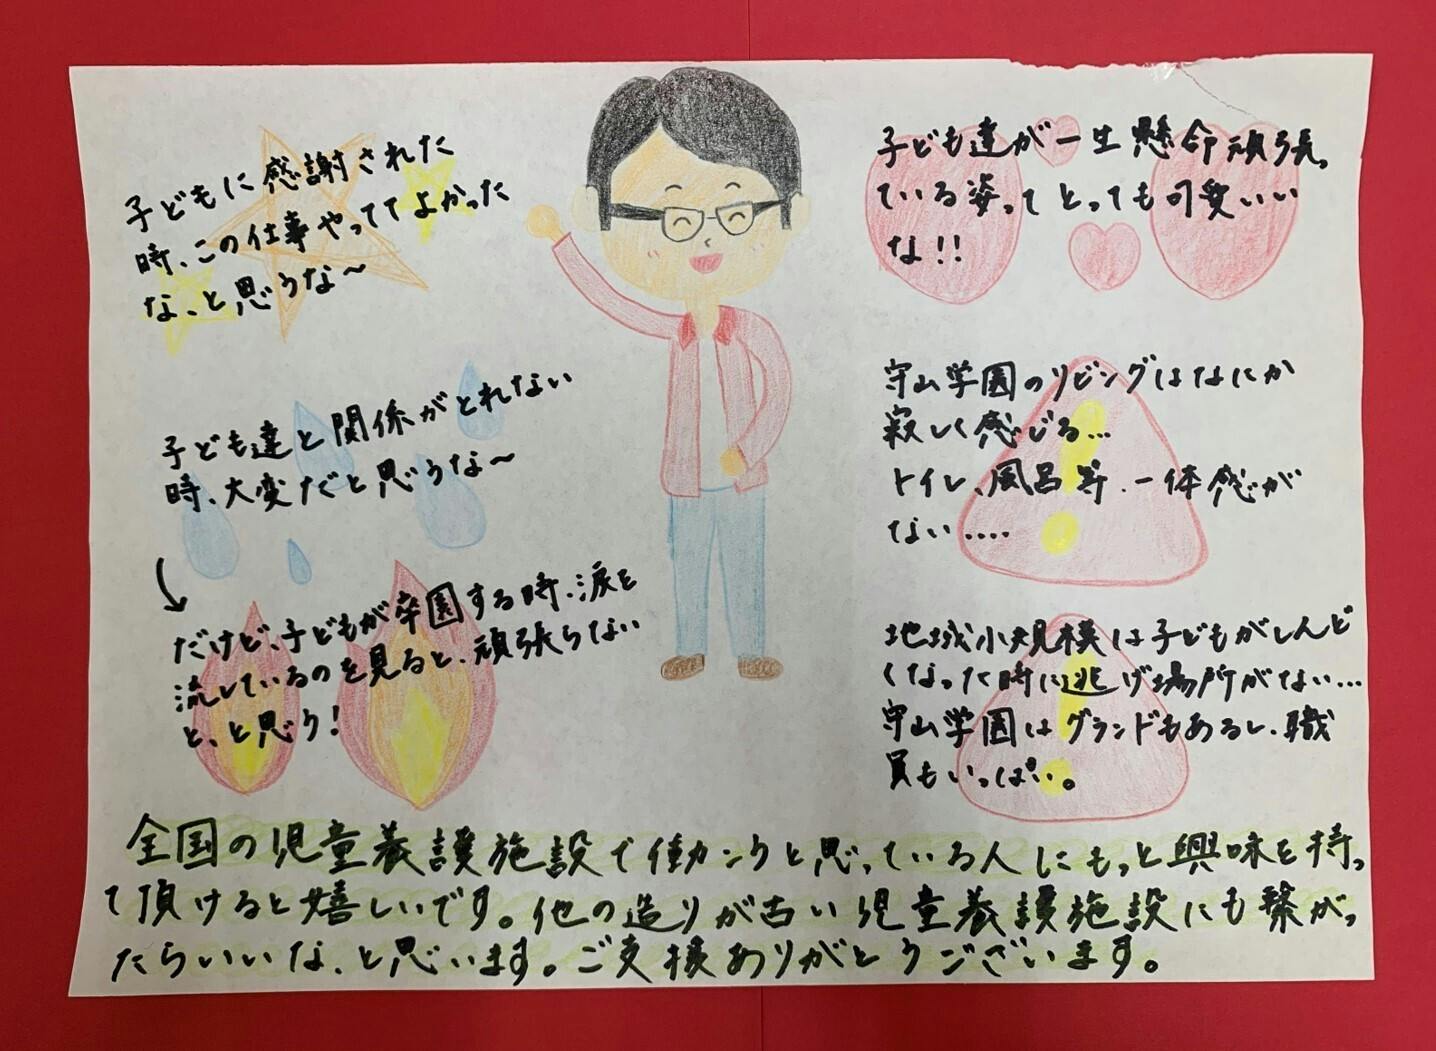 子どもに感謝された
時、この仕事やっててよかった
な、と思うな〜
子ども達と関係がとれない
時、大変だと思うな〜
だけど、子どもが卒園する時、涙を
流しているのを見ると、頑張らない
と、と思う!
子ども達が一生懸命頑張っ
ている姿ってとっても可愛いい
な!!
守山学園のリビングはなにか
寂しく感じる...
トイレ、風呂等、一体感が
ない....
地域小規模は子どもがしんど
くなった時に逃げ場所がない...
守山学園はグランドもあるし、職
員もいっぱい。
全国の児童養護施設で働かンクと思っている人にもっと興味を持っ
て頂けると嬉しいです。他の造りが古い児童養護施設にも繋がっ
たらいいな、と思います。ご支援ありがとうございます。